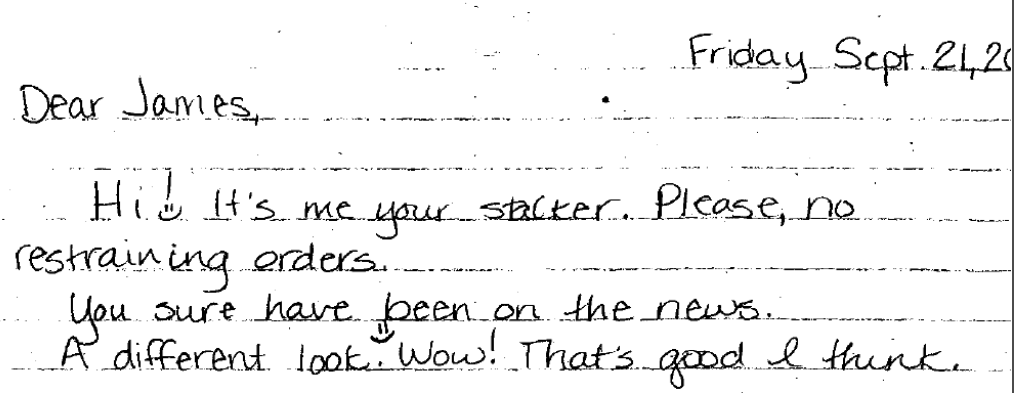 Friday Sept. 21, 20
Dear James,
Hi! It's me your stalker. Please, no
restraining orders.
You sure have been on the news.
A different look. Wow! That's good I think.